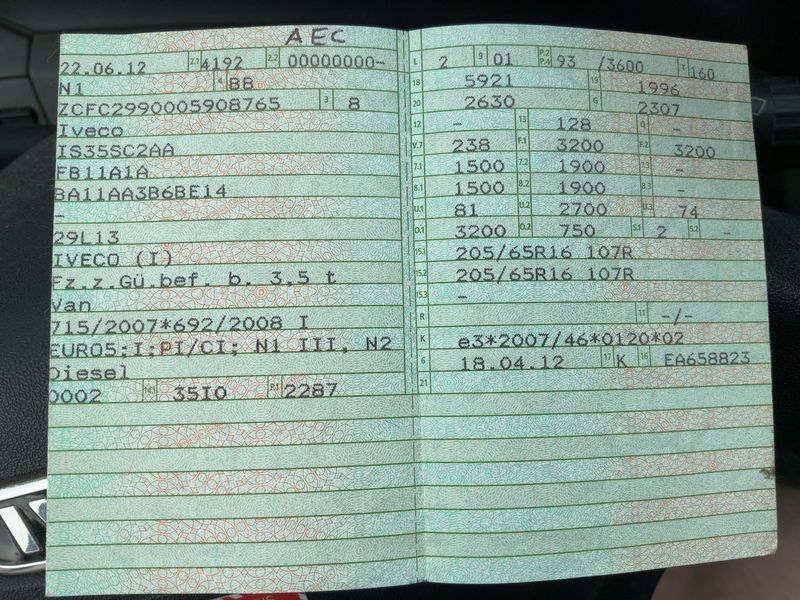 AEC
22.06.12 2.1 4192 2.2 00000000-
N1 4 BB
ZCFC2990005908765 3 8
Iveco
IS35SC2AA
FB11A1A
BA11AA3B6BE14
-
29L13
IVECO (I)
Fz.z.Gü.bef. b. 3,5 t
Van
715/2007*692/2008 I
EURO5;I;PI/CI; N1 III, N2
Diesel
0002 14.1 35I0 P.1 2287
L 2 9 01 P.2 P.4 93 /3600 T 160
18 5921 19 1996
20 2630 G 2307
12 - 13 128 Q -
V.7 238 F.1 3200 F.2 3200
7.1 1500 7.2 1900 7.3 -
8.1 1500 8.2 1900 8.3 -
U.1 81 U.2 2700 U.3 74
O.1 3200 O.2 750 S.1 2 S.2 -
15.1 205/65R16 107R
15.2 205/65R16 107R
15.3 -
R 11 -/-
K e3*2007/46*0120*02
6 18.04.12 17 K 16 EA658823
21